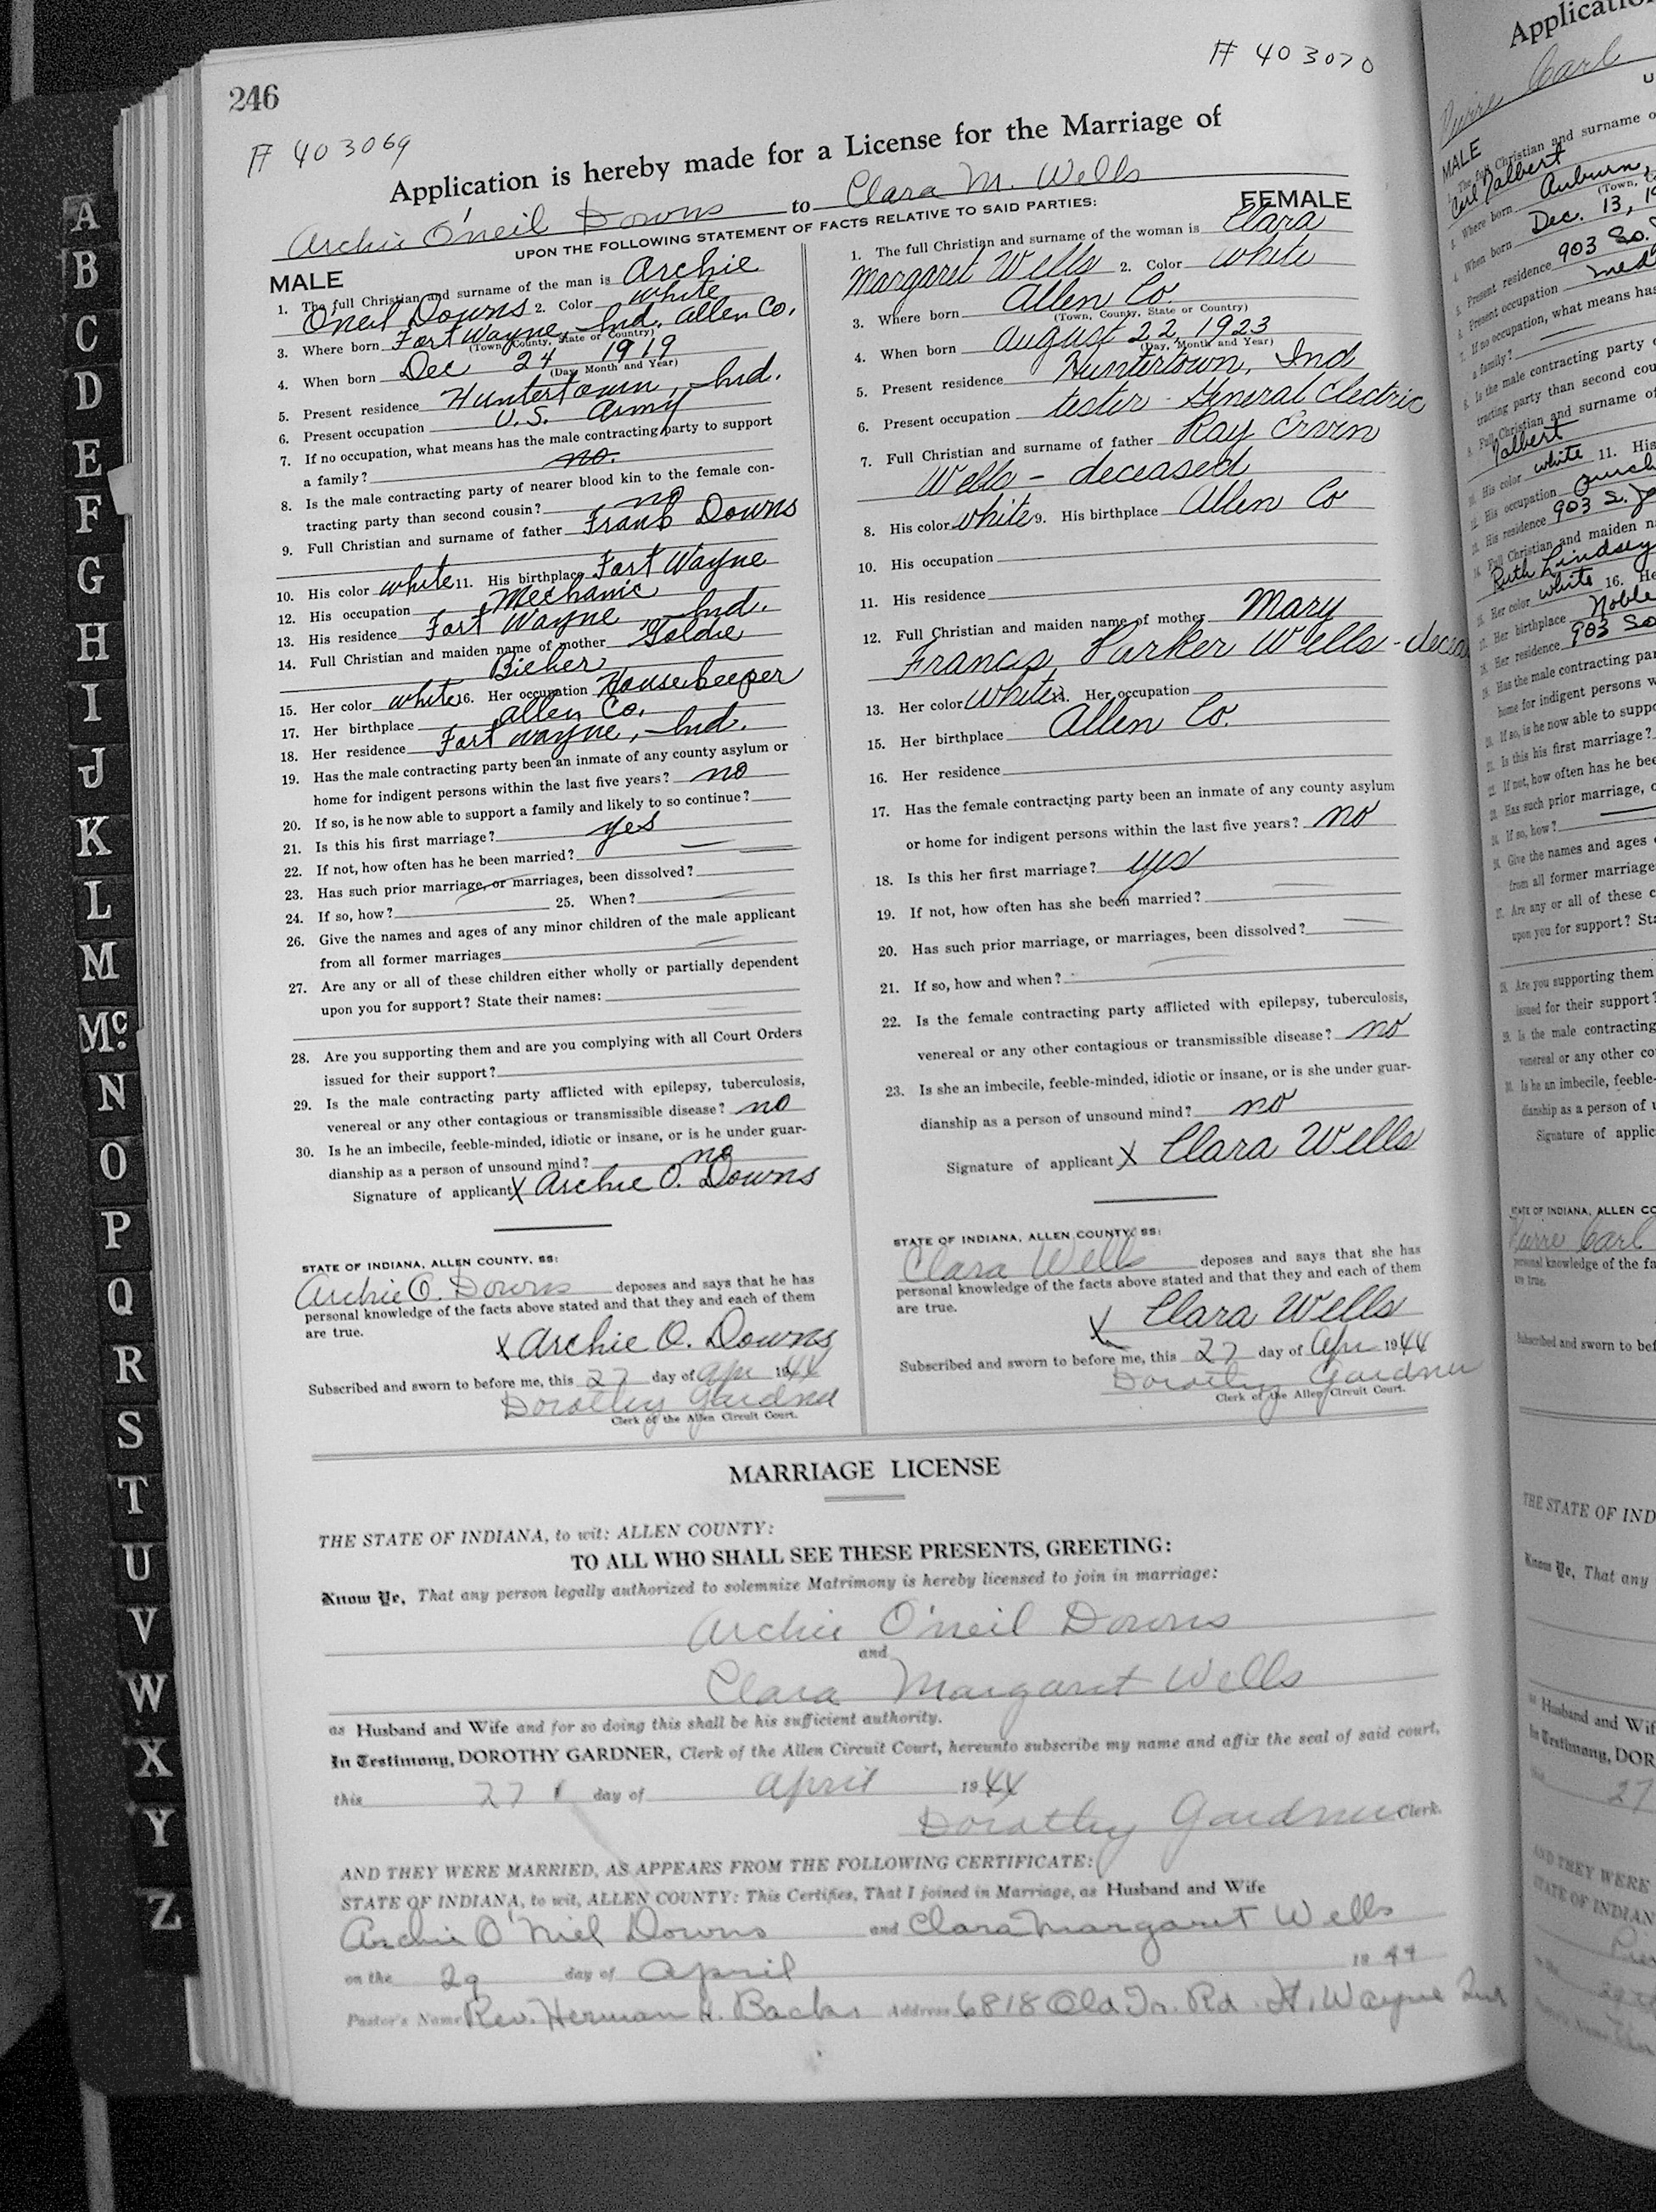 246
# 403069
# 403070
Application is hereby made for a License for the Marriage of
Archie O'neil Downs to Clara M. Wells
UPON THE FOLLOWING STATEMENT OF FACTS RELATIVE TO SAID PARTIES:
MALE
1. The full Christian and surname of the man is Archie
Oneil Downs 2. Color white
3. Where born Fort Wayne, Ind. Allen Co.
(Town, County, State or Country)
4. When born Dec 24 1919
(Day, Month and Year)
5. Present residence Huntertown, Ind.
6. Present occupation U.S. Army
7. If no occupation, what means has the male contracting party to support
a family? no.
8. Is the male contracting party of nearer blood kin to the female con-
tracting party than second cousin? no
9. Full Christian and surname of father Frank Downs
10. His color white 11. His birthplace Fort Wayne
12. His occupation Mechanic
13. His residence Fort Wayne Ind.
14. Full Christian and maiden name of mother Goldie
Bieber
15. Her color white 16. Her occupation Housekeeper
17. Her birthplace Allen Co.
18. Her residence Fort Wayne, Ind.
19. Has the male contracting party been an inmate of any county asylum or
home for indigent persons within the last five years? no
20. If so, is he now able to support a family and likely to so continue?
21. Is this his first marriage? yes
22. If not, how often has he been married?
23. Has such prior marriage, or marriages, been dissolved?
24. If so, how? 25. When?
26. Give the names and ages of any minor children of the male applicant
from all former marriages
27. Are any or all of these children either wholly or partially dependent
upon you for support? State their names:
28. Are you supporting them and are you complying with all Court Orders
issued for their support?
29. Is the male contracting party afflicted with epilepsy, tuberculosis,
venereal or any other contagious or transmissible disease? no
30. Is he an imbecile, feeble-minded, idiotic or insane, or is he under guar-
dianship as a person of unsound mind? no
Signature of applicant X Archie O. Downs
STATE OF INDIANA, ALLEN COUNTY, SS:
Archie O. Downs deposes and says that he has
personal knowledge of the facts above stated and that they and each of them
are true.
X Archie O. Downs
Subscribed and sworn to before me, this 27 day of Apr 1944
Dorothy Gardner
Clerk of the Allen Circuit Court.
FEMALE
1. The full Christian and surname of the woman is Clara
Margaret Wells 2. Color white
3. Where born Allen Co.
(Town, County, State or Country)
4. When born August 22, 1923
(Day, Month and Year)
5. Present residence Huntertown, Ind
6. Present occupation tester - General Electric
7. Full Christian and surname of father Ray Ervin
Wells - deceased
8. His color white 9. His birthplace Allen Co
10. His occupation
11. His residence
12. Full Christian and maiden name of mother Mary
Francis Parker Wells - decea
13. Her color white 14. Her occupation
15. Her birthplace Allen Co.
16. Her residence
17. Has the female contracting party been an inmate of any county asylum
or home for indigent persons within the last five years? no
18. Is this her first marriage? yes
19. If not, how often has she been married?
20. Has such prior marriage, or marriages, been dissolved?
21. If so, how and when?
22. Is the female contracting party afflicted with epilepsy, tuberculosis,
venereal or any other contagious or transmissible disease? no
23. Is she an imbecile, feeble-minded, idiotic or insane, or is she under guar-
dianship as a person of unsound mind? no
Signature of applicant X Clara Wells
STATE OF INDIANA, ALLEN COUNTY, SS:
Clara Wells deposes and says that she has
personal knowledge of the facts above stated and that they and each of them
are true.
X Clara Wells
Subscribed and sworn to before me, this 27 day of Apr 1944
Dorothy Gardner
Clerk of the Allen Circuit Court.
MARRIAGE LICENSE
THE STATE OF INDIANA, to wit: ALLEN COUNTY:
TO ALL WHO SHALL SEE THESE PRESENTS, GREETING:
Know Ye, That any person legally authorized to solemnize Matrimony is hereby licensed to join in marriage:
Archie O'neil Downs
and
Clara Margaret Wells
as Husband and Wife and for so doing this shall be his sufficient authority.
In Testimony, DOROTHY GARDNER, Clerk of the Allen Circuit Court, hereunto subscribe my name and affix the seal of said court,
this 27 day of April 1944
Dorothy Gardner Clerk.
AND THEY WERE MARRIED, AS APPEARS FROM THE FOLLOWING CERTIFICATE:
STATE OF INDIANA, to wit, ALLEN COUNTY: This Certifies, That I joined in Marriage, as Husband and Wife
Archie O'Niel Downs and Clara Margaret Wells
on the 29 day of April 1944
Pastor's Name Rev. Herman H. Backs Address 6818 Old Tr. Rd. Ft. Wayne Ind
A
B
C
D
E
F
G
H
I
J
K
L
M
Mc
N
O
P
Q
R
S
T
U
V
W
X
Y
Z
Carl
MALE
Carl Talbert
Where born Auburn,
Dec. 13, 19
903 So.
Talbert
white 11. His
903 S.
Ruth Lindsey
white 16. He
Noble
903 So
STATE OF INDIANA, ALLEN CO
THE STATE OF IND
Know Ye, That any
as Husband and Wif
In Testimony, DOR
27
AND THEY WERE
STATE OF INDIAN